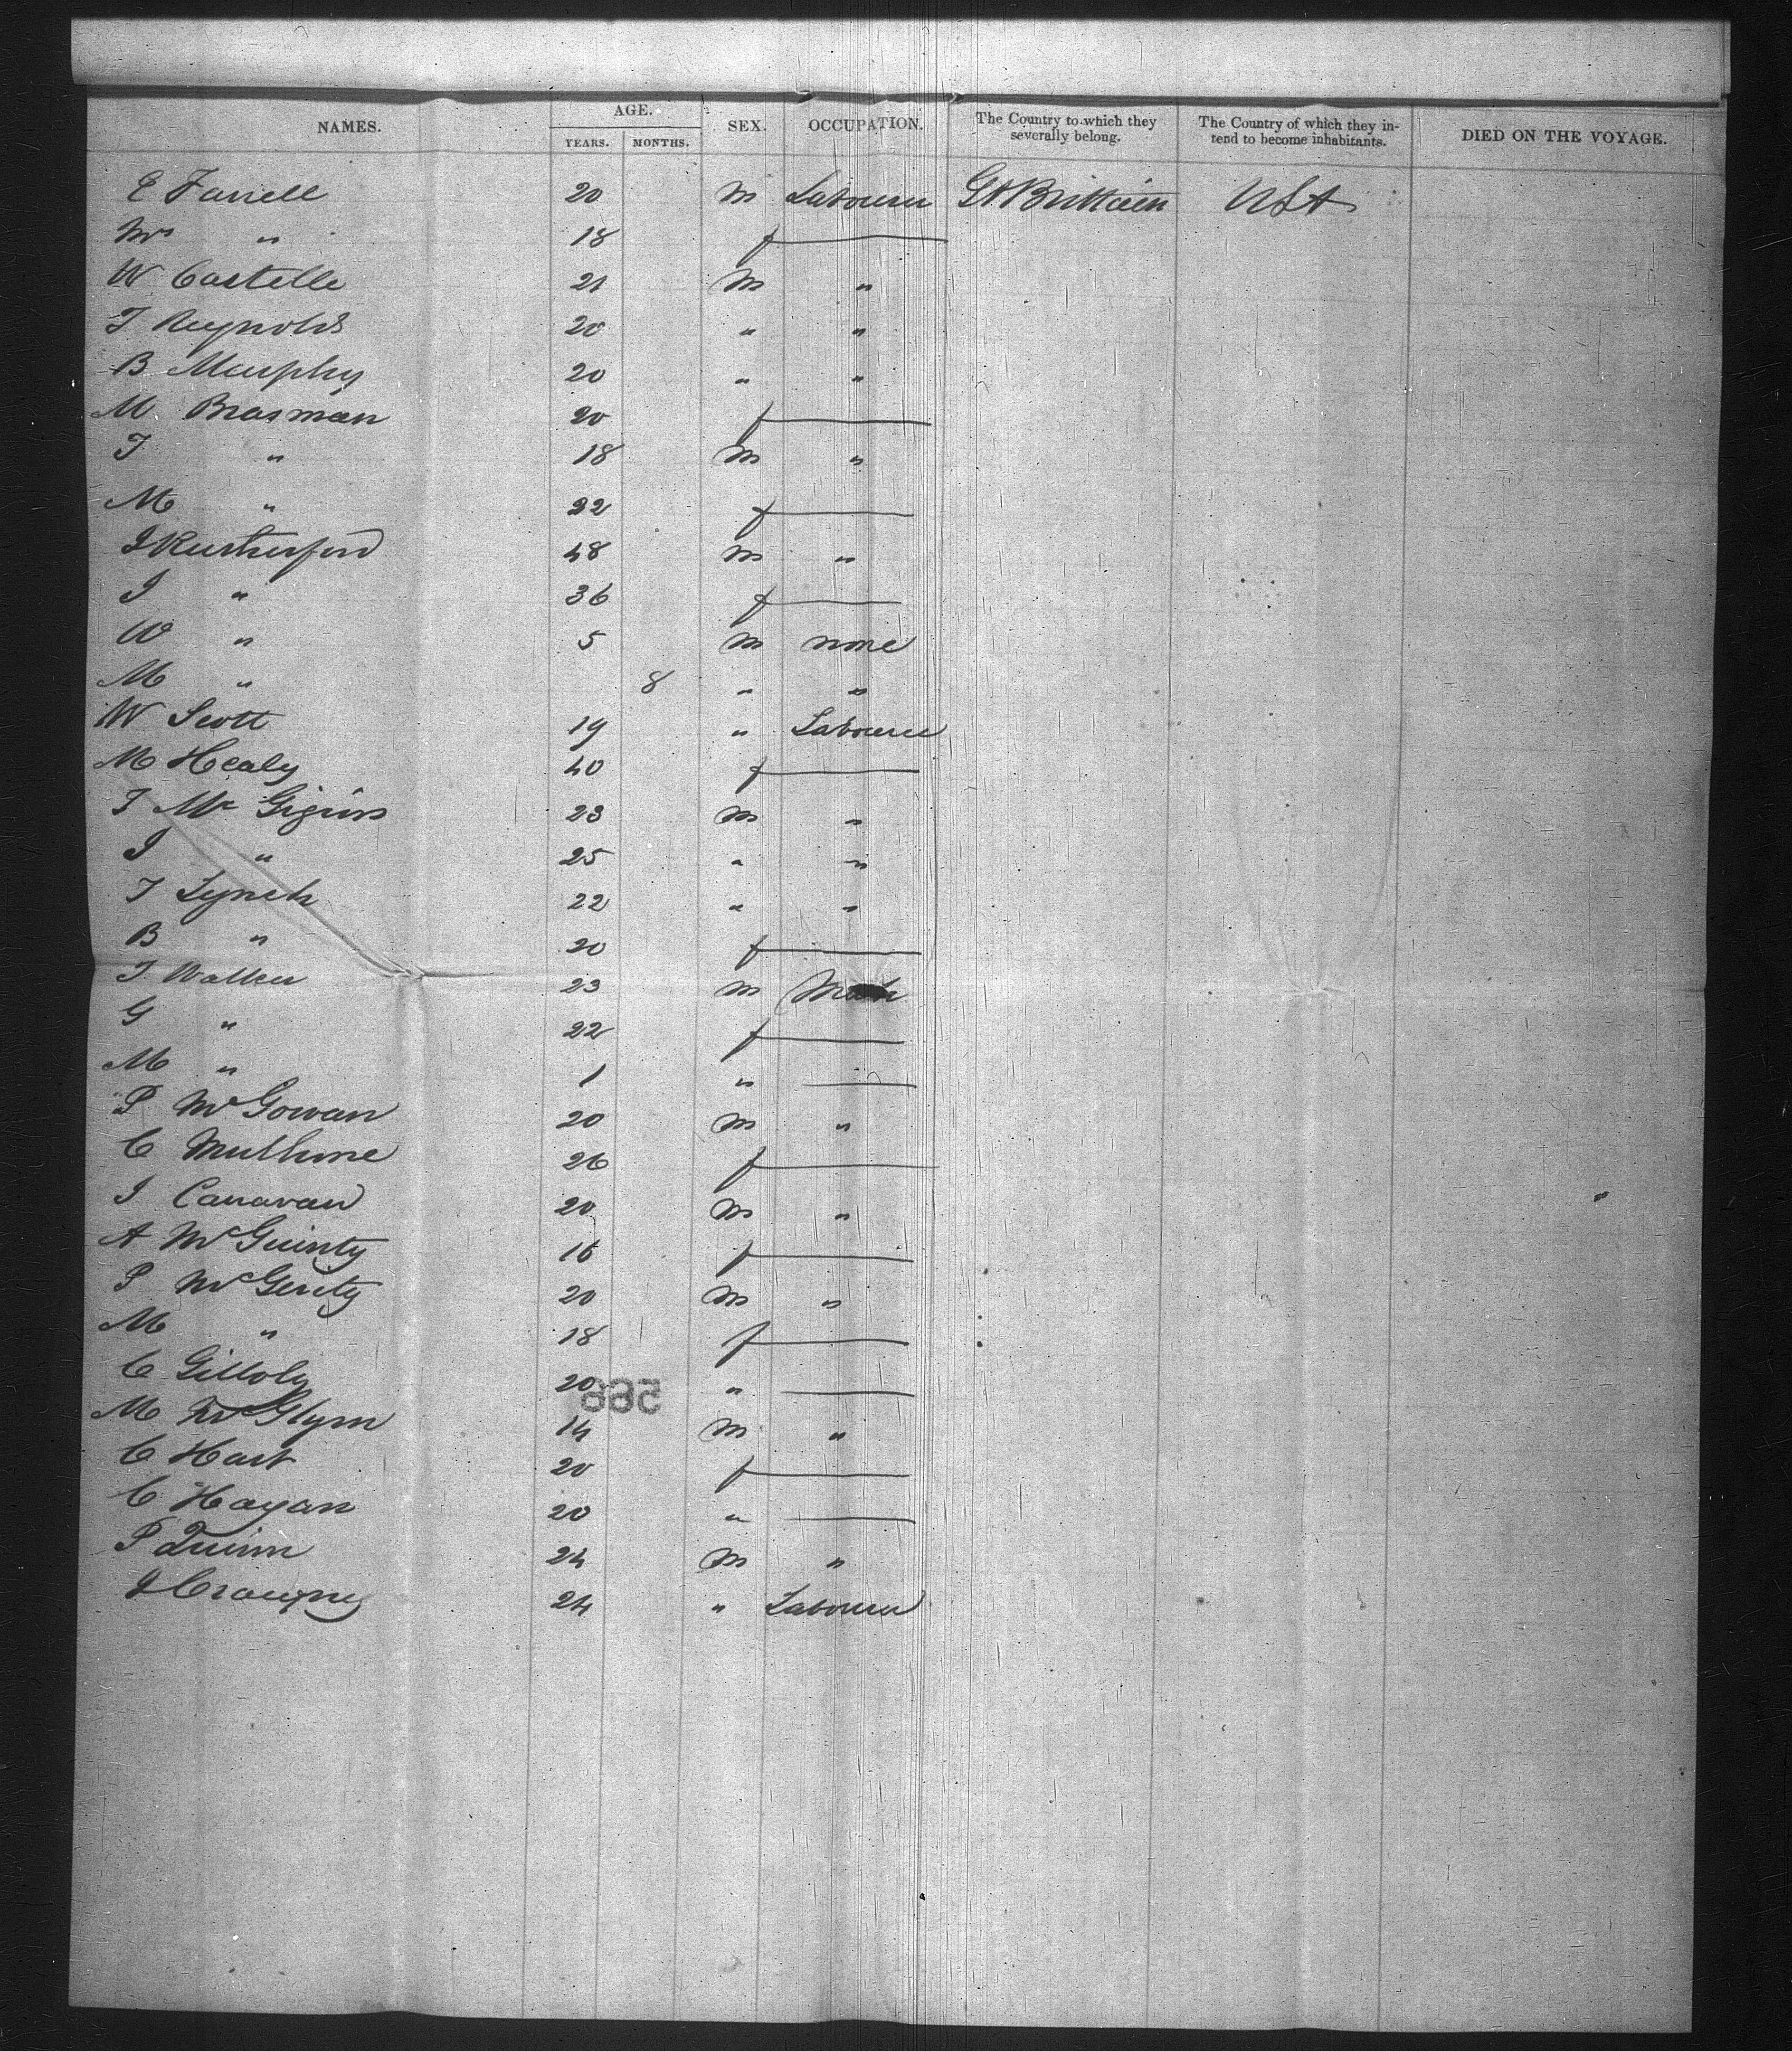 NAMES. AGE. YEARS. MONTHS. SEX. OCCUPATION. The Country to which they severally belong. The Country of which they intend to become inhabitants. DIED ON THE VOYAGE.
E Farrell 20 m Labourer Gt Brittain USA
Mrs " 18 f
W Costelle 21 m "
T Reynolds 20 " "
B Murphy 20 " "
M Brosman 20 f
T " 18 m "
M " 22 f
J Rutherford 48 m "
J " 36 f
W " 5 m none
M " 8 " "
W Scott 19 " Labourer
M Healy 40 f
T Mc 23 m "
J " 25 " "
T Lynch 22 " "
B " 20 f
T Walker 23 m
G " 22 f
M " 1 "
P McGowan 20 m "
C 26 f
J Canavan 20 m "
A McGuinty 16 f
P McGerity 20 m "
M " 18 f
C Gilloly 20 "
568
M McGlynn 14 m "
C Hart 20 f
C Hagan 20 "
P Quinn 24 m "
J 24 " Labourer